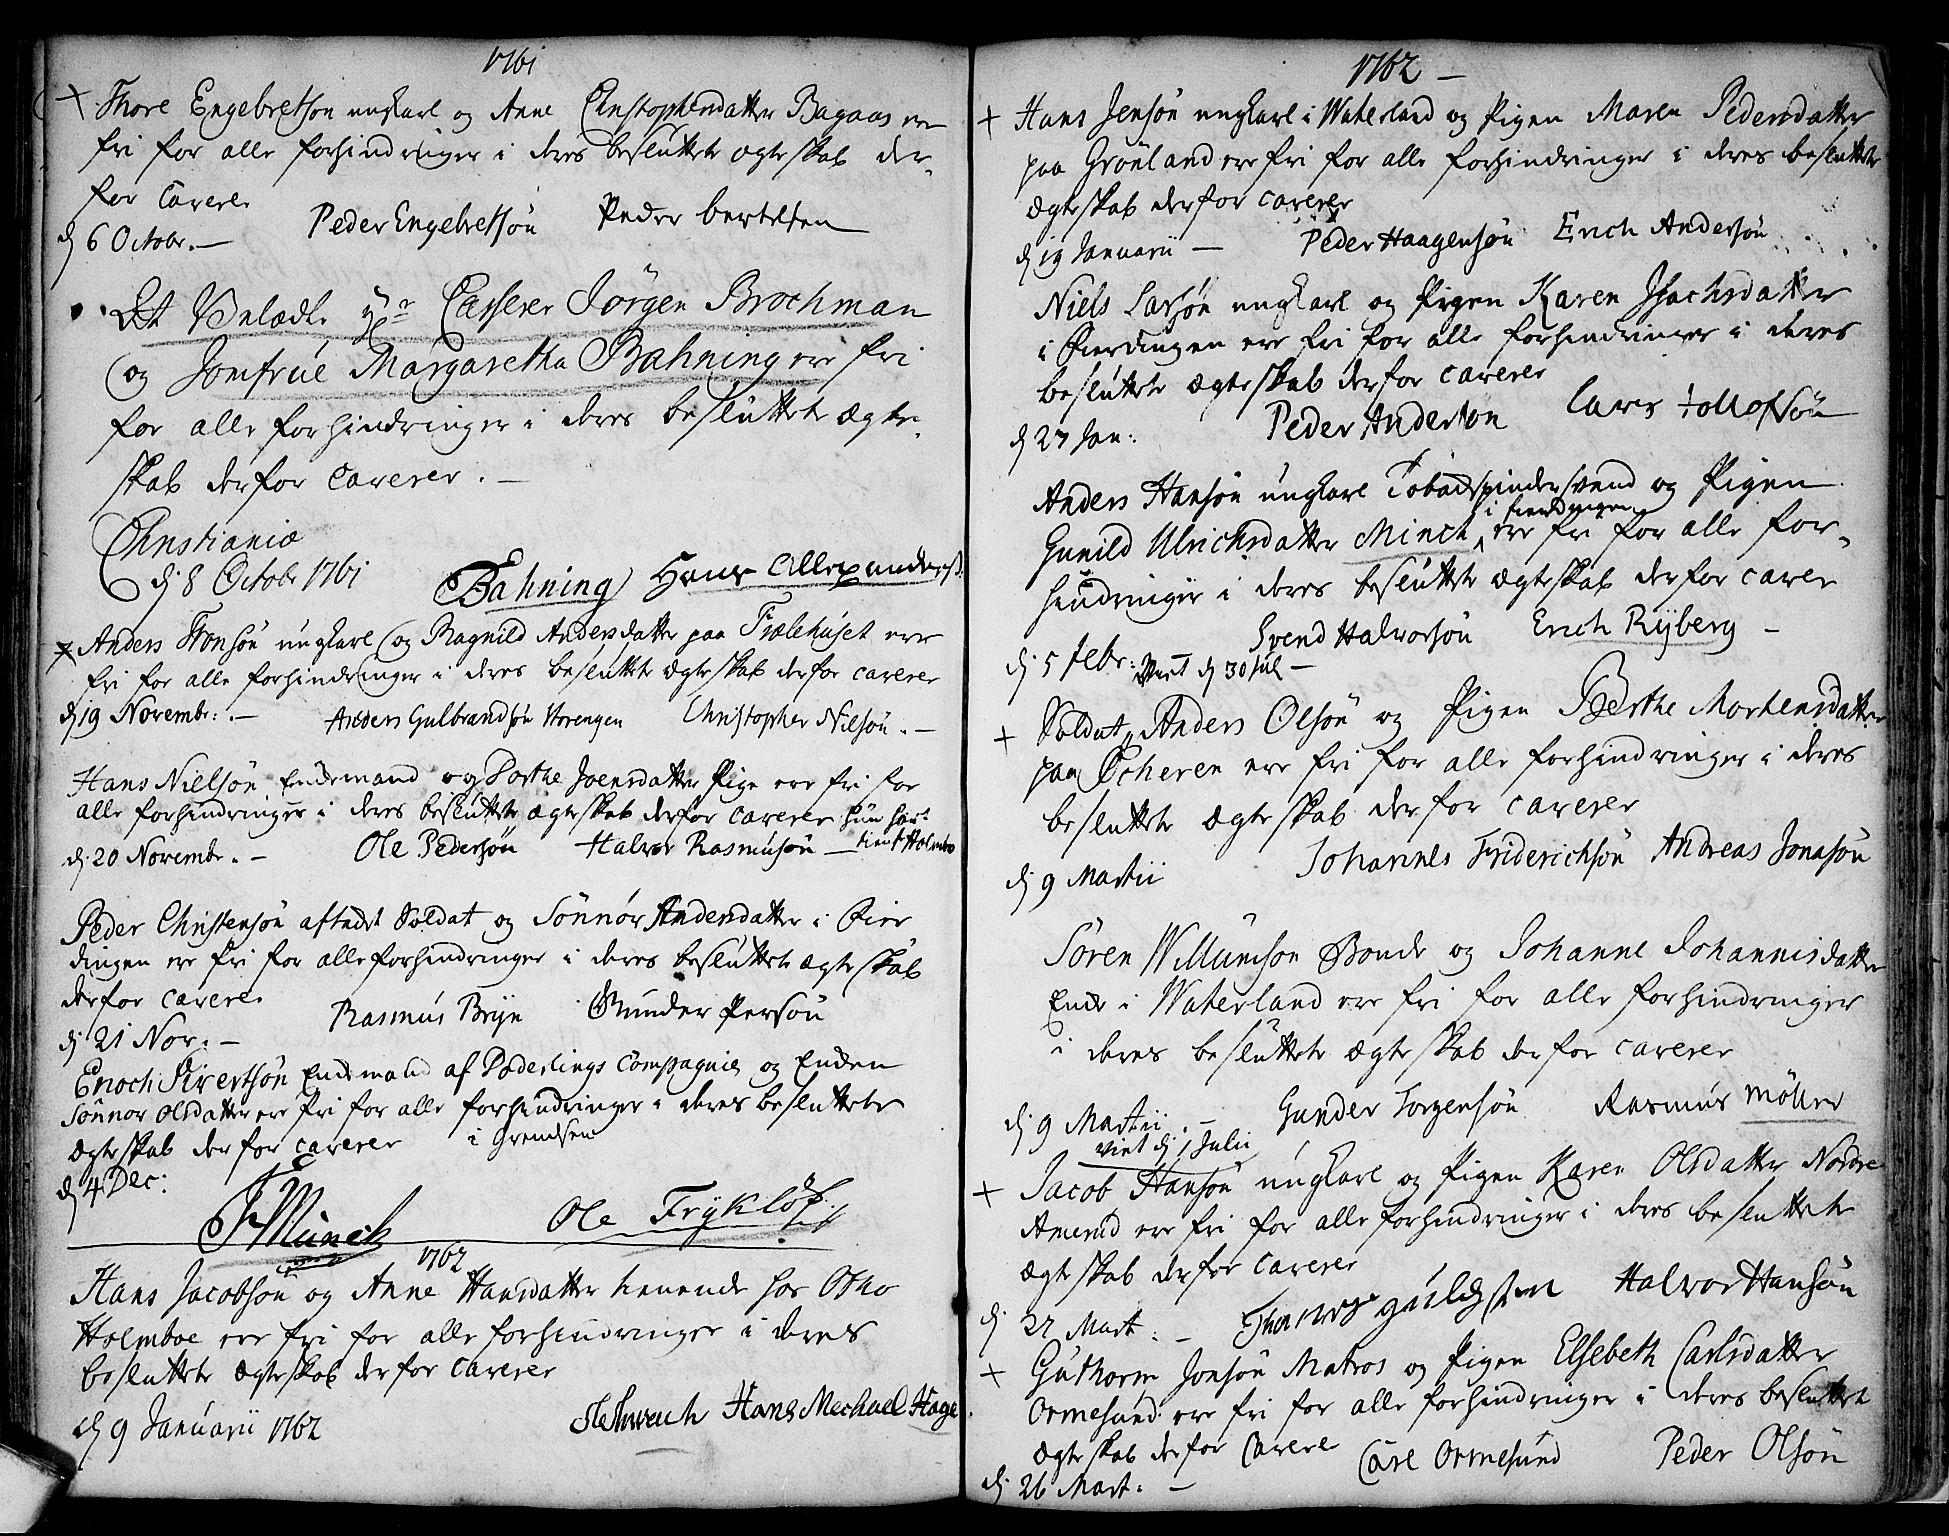 1761
+ Thore Engebretsøn ungkarl og Anne Christophersdatter Bagaas ere
fri for alle forhindringer i deres besluttete ægteskab der„
for caverer
d 6 Octobr. — Peder Engebretsøn Peder bertelsen
Det Velædle Hr Casserer Jörgen Brochman
og Jomfrue Margaretha Bahning ere fri
for alle forhindringer i deres besluttete ægte„
skab derfor caverer. —
Christiania
d. 8 Octobr 1761 Bahning Hans Allexanders.
+ Anders Hansøn ungkarl og Ragnild Andersdatter paa Fælehuset ere
fri for alle forhindringer i deres besluttete ægteskab derfor caverer
d 19 Novembr: — Anders Gulbrandsøn Vorengen Christopher Nilsøn. —
Hans Nielsøn Enkemand og Dorthe Joensdatter Pige ere fri for
alle forhindringer i deres besluttete ægteskab derfor caverer hun har
tient Holmbo
d. 20 Novembr. — Ole Pedersøn Halvor Rasmusøn —
Peder Christensøn aftadt Soldat og Sönnör Andersdatter i Fier
dingen ere fri for alle forhindringer i deres besluttete ægteskab
derfor caverer
d. 21 Nov. — Rasmus Bryn Gunder Persøn
Enoch Sivertsøn Enkemand af Poderlings Compagnie og Enken
Sönnor Olsdatter ere fri for alle forhindringer i deres besluttete
ægteskab derfor caverer i Grendsen
d 4 Dec:
Munch Ole Fryklöf
1762
Hans Jacobsøn og Anne Hansdatter tienende hos Otho
Holmboe ere fri for alle forhindringer i deres
besluttete ægteskab derfor caverer
d 9 Januarii 1762 Hans Mechael Hage
1762 —
+ Hans Jensøn ungkarl i Waterland og Pigen Maren Pedersdatter
paa Grönland ere fri for alle forhindringer i deres besluttete
ægteskab derfor caverer
d 19 Januarii — Peder Haagensøn Erich Andersøn
Niels Larsøn ungkarl og Pigen Karen Isachsdatter
i Fierdingen ere fri for alle forhindringer i deres
besluttete ægteskab derfor caverer
d 27 Jan: Peder Anderson Lars tollofsøn
Anders Hansøn ungkarl Tobachspindersvend og Pigen
i fierdingen
Gunild Ulrichsdatter Minch ere fri for alle for„
hindringer i deres besluttete ægteskab derfor caver
Svend Halvorsøn Erich Ryberg —
d. 5 febr: Viet d 30 Jul —
+ Soldat Anders Olsøn og Pigen Berthe Mortensdatter
paa Echeren ere fri for alle forhindringer i deres
besluttete ægteskab derfor caverer
d. 9 Martii Johannes Friderichsøn Andreas Jonasøn
Sören Willumson Bonde og Johanne Johannisdatter
Enke i Waterland ere fri for alle forhindringer
i deres besluttete ægteskab derfor caverer
d. 9 Martii. — Gunder Torgensøn Rasmus Möller
viet d. 1 Julii
+ Jacob Hansøn ungkarl og Pigen Karen Olsdatter Nordre
Amerud ere fri for alle forhindringer i deres besluttete
ægteskab derfor caverer
d 22 Mart: — Halvor Hansøn
+ Guthorm Jonsøn Matros og Pigen Elsebeth Carlsdatter
Ormesund ere fri for alle forhindringer i deres besluttet
ægteskab derfor caverer Carl Ormesund Peder Olsøn
d. 26 Mart. —